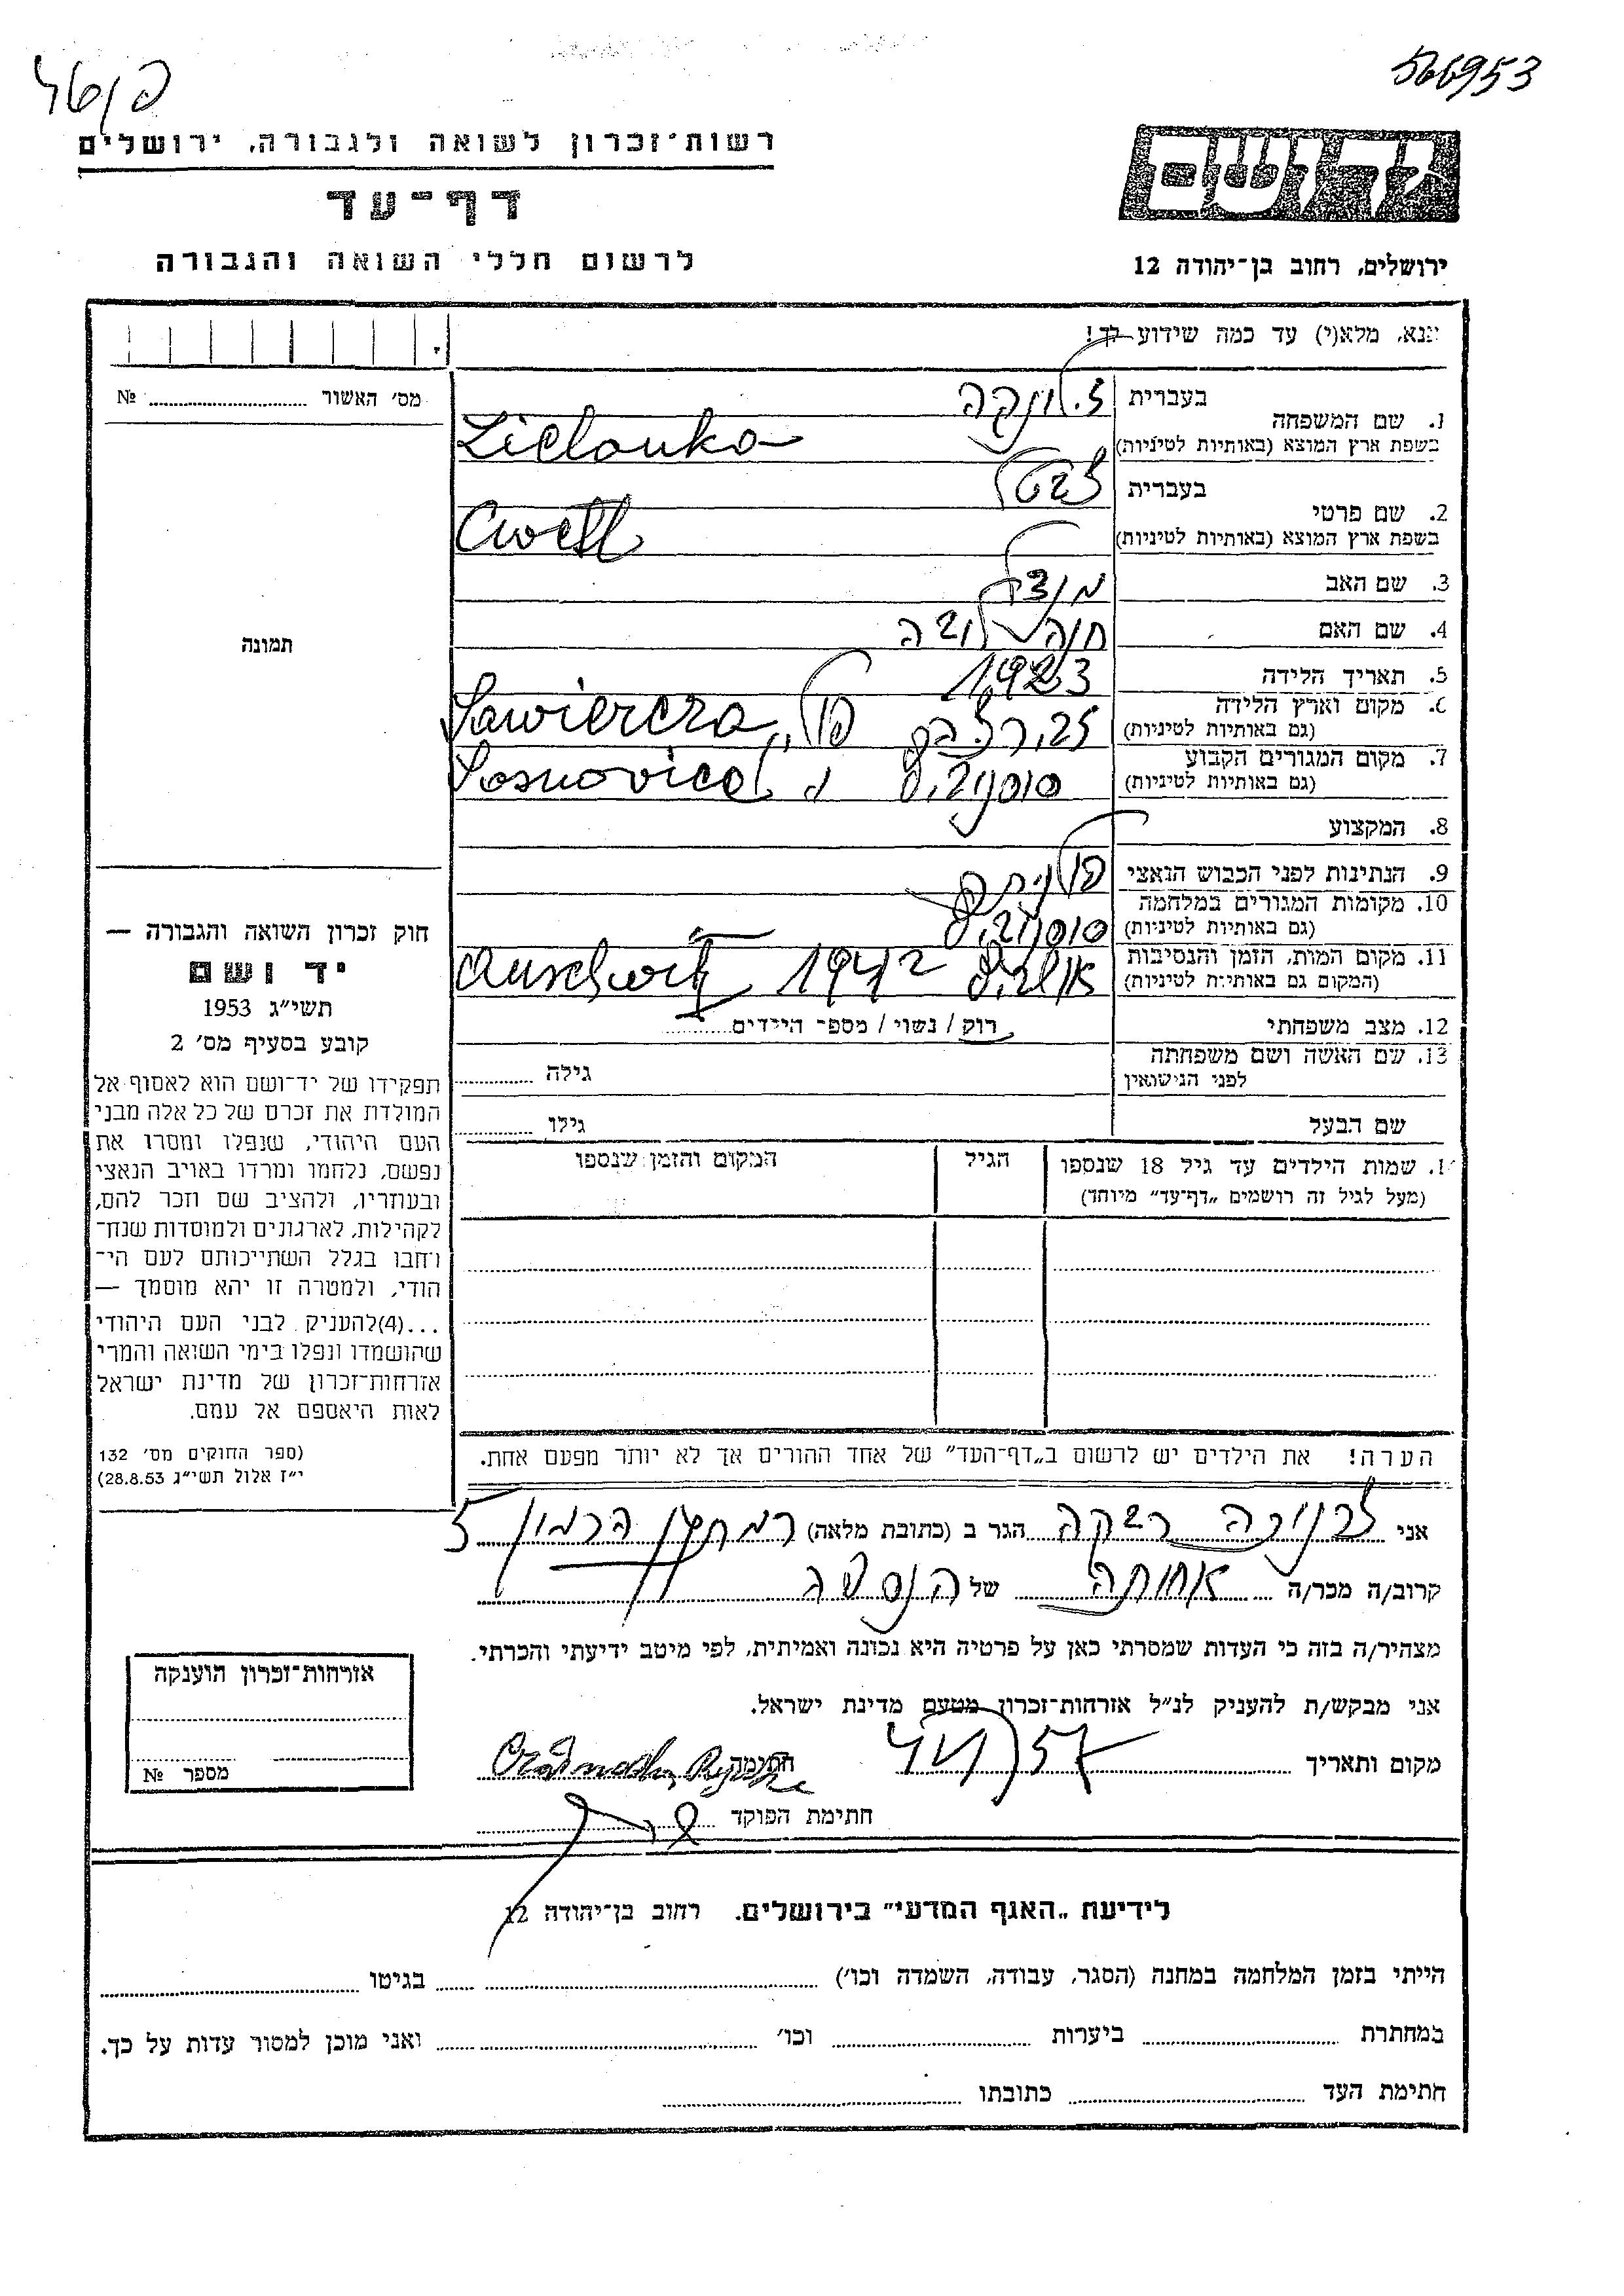 566953
רשות־זכרון לשואה ולגבורה, ירושלים
דף־עד
לרשום חללי השואה והגבורה
ידושם
ירושלים, רחוב בן־יהודה 12
אנא, מלא(י) עד כמה שידוע לך!
מס׳ האשור № 
1. שם המשפחה בעברית זילונקה
בשפת ארץ המוצא (באותיות לטיניות) Zielonka
2. שם פרטי בעברית
בשפת ארץ המוצא (באותיות לטיניות)
3. שם האב
4. שם האם חוה
5. תאריך הלידה 1923
6. מקום וארץ הלידה
(גם באותיות לטיניות) Sawiercza
7. מקום המגורים הקבוע
(גם באותיות לטיניות) סוסנוביץ
8. המקצוע
9. הנתינות לפני הכבוש הנאצי פולנית
10. מקומות המגורים במלחמה
(גם באותיות לטיניות) סוסנוביץ
11. מקום המות, הזמן והנסיבות
(המקום גם באותיות לטיניות) אושביץ 1942 Auschwitz
12. מצב משפחתי רווק / נשוי / מספר הילדים
13. שם האשה ושם משפחתה
לפני הנישואין גילה
שם הבעל גילו
שמות הילדים עד גיל 18 שנספו הגיל המקום והזמן שנספו
(מעל לגיל זה רושמים „דף־עד” מיוחד)
הערה! את הילדים יש לרשום ב„דף־העד” של אחד ההורים אך לא יותר מפעם אחת.
תמונה
חוק זכרון השואה והגבורה —
יד ושם
תשי״ג 1953
קובע בסעיף מס׳ 2
תפקידו של יד־ושם הוא לאסוף אל
המולדת את זכרם של כל אלה מבני
העם היהודי, שנפלו ומסרו את
נפשם, נלחמו ומרדו באויב הנאצי
ובעוזריו, ולהציב שם וזכר להם,
לקהילות, לארגונים ולמוסדות שנח־
רחבו בגלל השתייכותם לעם הי־
הודי, ולמטרה זו יהא מוסמך —
...(4)להעניק לבני העם היהודי
שהושמדו ונפלו בימי השואה והמרי
אזרחות־זכרון של מדינת ישראל
לאות היאספם אל עמם.
(ספר החוקים מס׳ 132
י״ז אלול תשי״ג 28.8.53)
אני רבקה הגר ב (כתובת מלאה)
קרוב/ה מכר/ה אחותה של הנספה
מצהיר/ה בזה כי העדות שמסרתי כאן על פרטיה היא נכונה ואמיתית, לפי מיטב ידיעתי והכרתי.
אני מבקש/ת להעניק לנ״ל אזרחות־זכרון מטעם מדינת ישראל.
מקום ותאריך חתימה
חתימת הפוקד
אזרחות־זכרון הוענקה
מספר №
לידיעת „האגף המדעי” בירושלים. רחוב בן־יהודה 12
הייתי בזמן המלחמה במחנה (הסגר, עבודה, השמדה וכו׳) בגיטו
במחתרת ביערות וכו׳ ואני מוכן למסור עדות על כך.
חתימת העד כתובתו